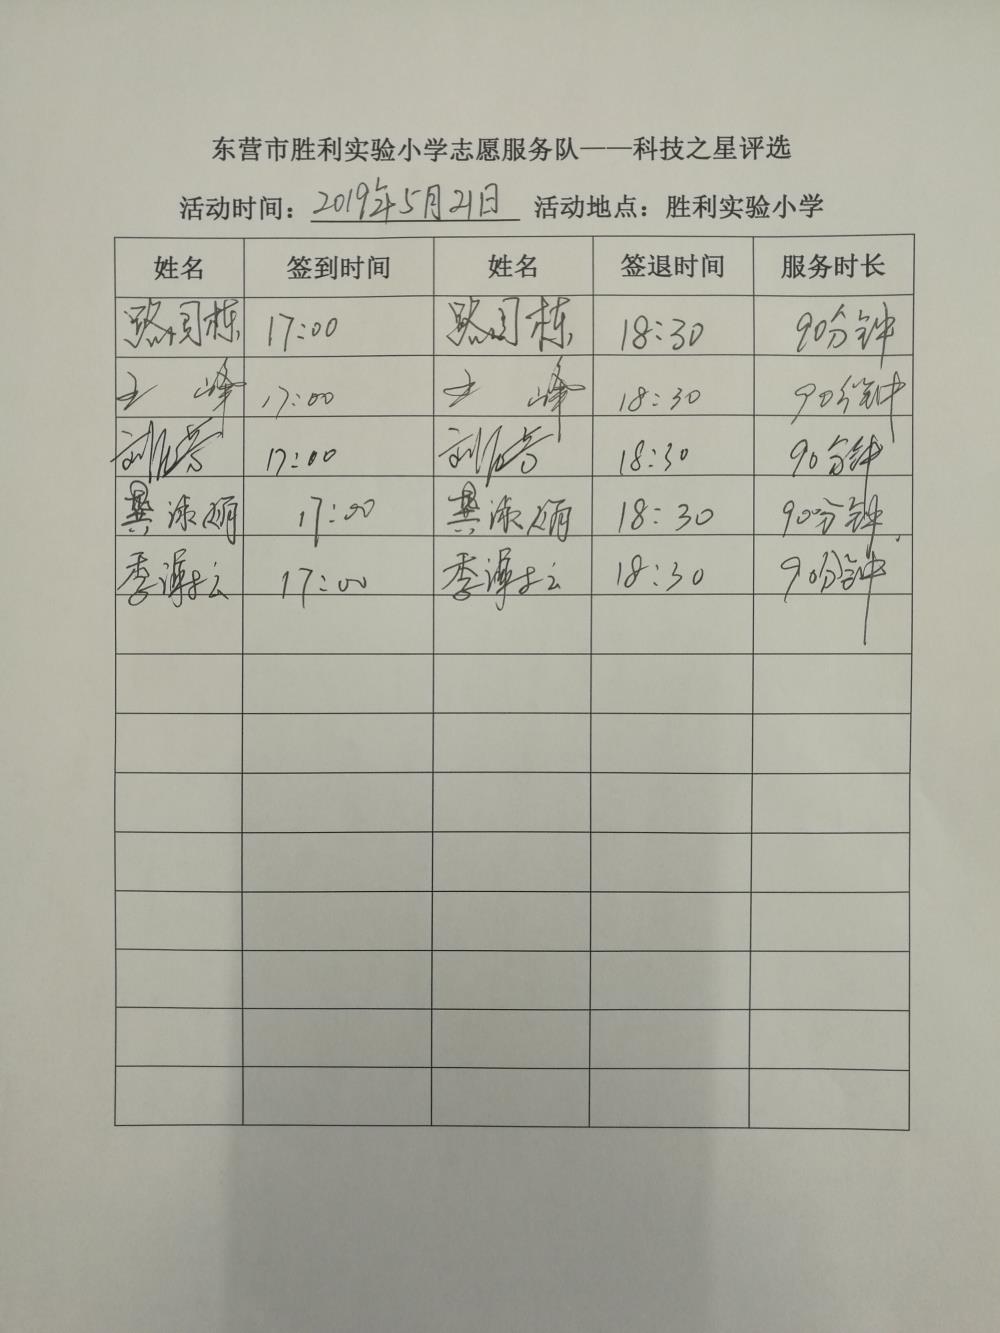 东营市胜利实验小学志愿服务队——科技之星评选
活动时间：2019年5月21日 活动地点：胜利实验小学
姓名 签到时间 姓名 签退时间 服务时长
17:00 18:30 90分钟
王峰 17:00 王峰 18:30 90分钟
17:00 18:30 90分钟
17:00 18:30 90分钟
17:00 18:30 90分钟